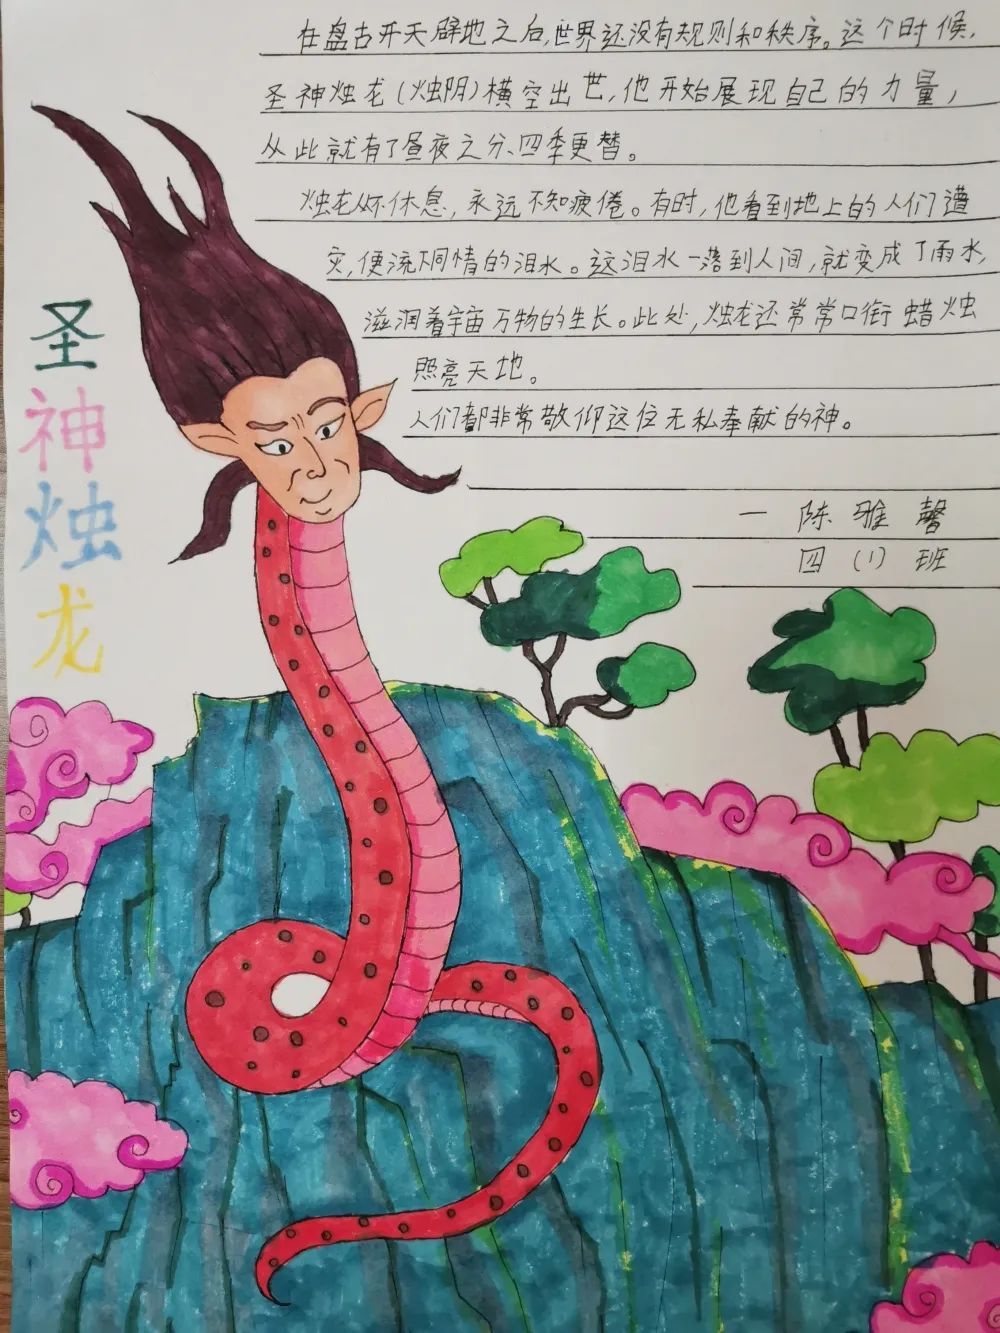 在盘古开天辟地之后,世界还没有规则和秩序。这个时候,
圣神烛龙(烛阴)横空出世,他开始展现自己的力量,
从此就有了昼夜之分、四季更替。
烛龙从不休息,永远不知疲倦。有时,他看到地上的人们遭
灾,便流下同情的泪水。这泪水一落到人间,就变成了雨水,
滋润着宇宙万物的生长。此处,烛龙还常常口衔蜡烛
照亮天地。
人们都非常敬仰这位无私奉献的神。
一 陈雅馨
四(1)班
圣
神
烛
龙